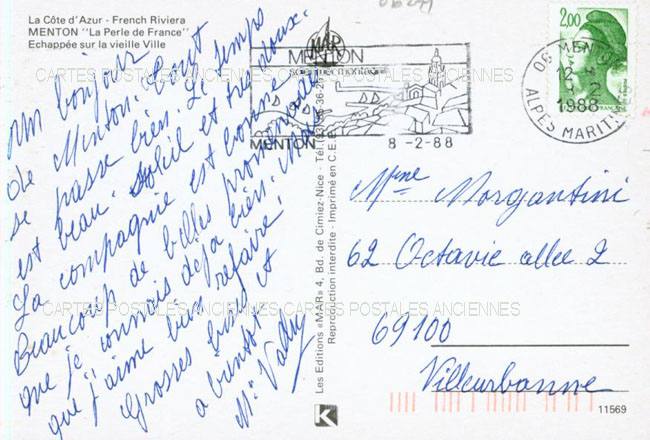 La Côte d'Azur - French Riviera
MENTON "La Perle de France"
Echappée sur la vieille Ville
Un bonjour
de Menton. Tout
se passe bien. Le temps
est beau. Soleil et très doux.
La compagnie est bonne
Beaucoup de belles promenades
que je connais déjà bien. Mais
que j'aime bien refaire.
Grosses bises et
a bientot
Mme
Les Editions «MAR» 4, Bd. de Cimiez-Nice - Tél.
Reproduction interdite - Imprimé en C.E.E.
K
MAR
MENTON
MENTON
8-2-88
2,00
06 MENTON
12 H
8-2
1988
ALPES MARITIMES
Mme Morgantini
62 Octavie allee 2
69100
Villeurbanne
11569
CARTES POSTALES ANCIENNES CARTES POSTALES ANCIENNES
CARTES POSTALES ANCIENNES CARTES POSTALES ANCIENNES